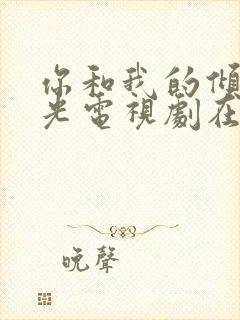 你和我的傾
光電視劇在
晚聲